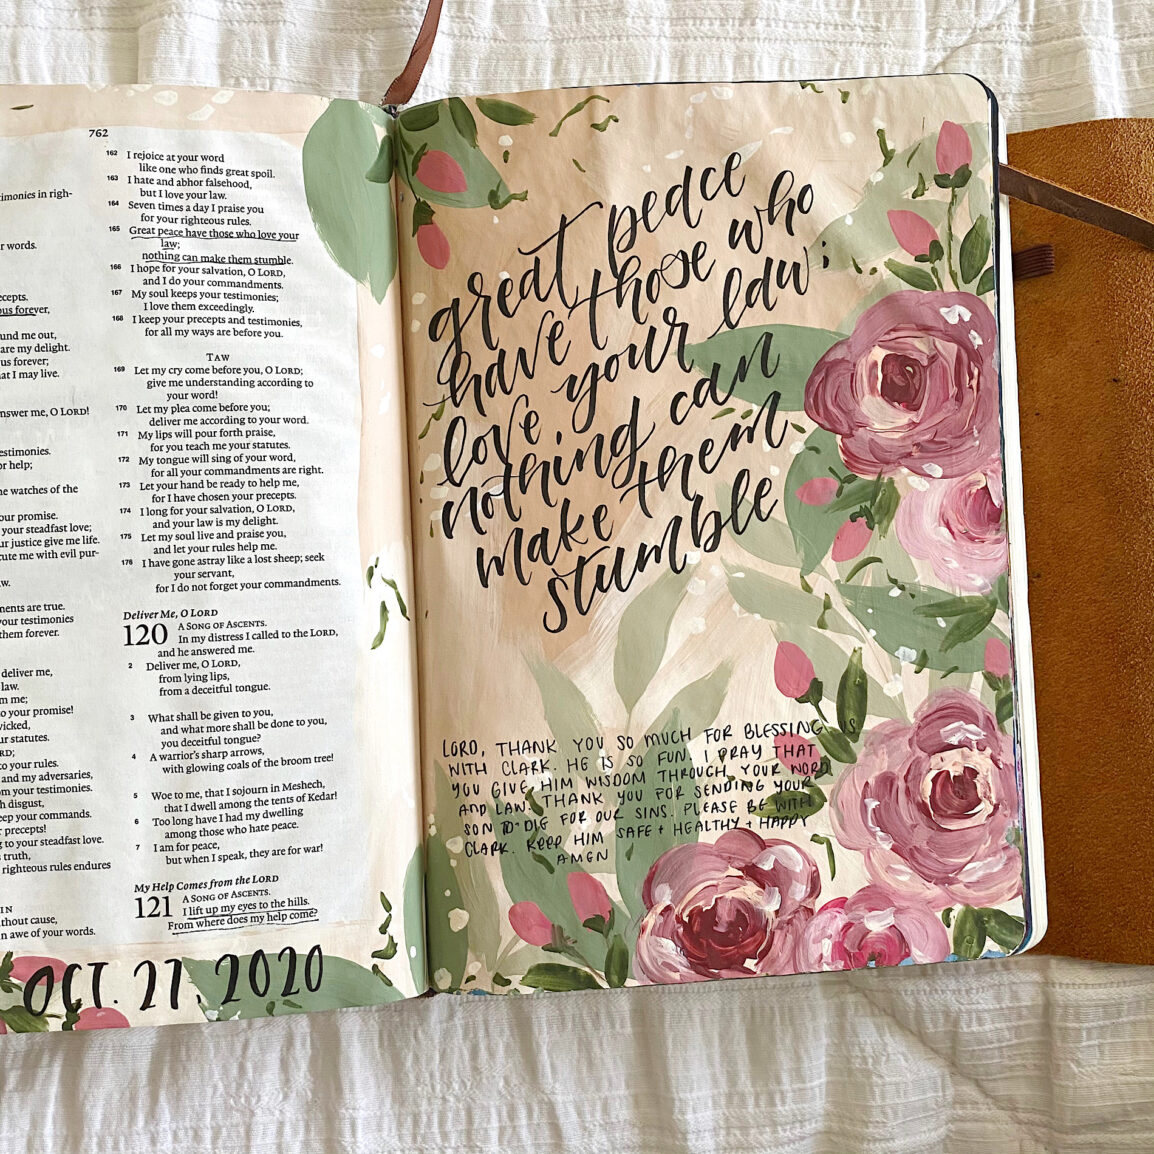 762
timonies in righ-
r words.
ecepts.
ous forever,
und me out,
are my delight.
us forever;
at I may live.
nswer me, O LORD!
estimonies.
or help;
he watches of the
our promise.
your steadfast love;
ur justice give me life.
cute me with evil pur-
w.
ments are true.
your testimonies
them forever.
deliver me,
law.
m me;
to your promise!
vicked,
ur statutes.
RD;
to your rules.
and my adversaries,
om your testimonies.
h disgust,
eep your commands.
r precepts!
g to your steadfast love.
s truth,
righteous rules endures
IN
ithout cause,
n awe of your words.
162 I rejoice at your word
like one who finds great spoil.
163 I hate and abhor falsehood,
but I love your law.
164 Seven times a day I praise you
for your righteous rules.
165 Great peace have those who love your
law;
nothing can make them stumble.
166 I hope for your salvation, O LORD,
and I do your commandments.
167 My soul keeps your testimonies;
I love them exceedingly.
168 I keep your precepts and testimonies,
for all my ways are before you.
TAW
169 Let my cry come before you, O LORD;
give me understanding according to
your word!
170 Let my plea come before you;
deliver me according to your word.
171 My lips will pour forth praise,
for you teach me your statutes.
172 My tongue will sing of your word,
for all your commandments are right.
173 Let your hand be ready to help me,
for I have chosen your precepts.
174 I long for your salvation, O LORD,
and your law is my delight.
175 Let my soul live and praise you,
and let your rules help me.
176 I have gone astray like a lost sheep; seek
your servant,
for I do not forget your commandments.
Deliver Me, O LORD
120 A SONG OF ASCENTS.
In my distress I called to the LORD,
and he answered me.
2 Deliver me, O LORD,
from lying lips,
from a deceitful tongue.
3 What shall be given to you,
and what more shall be done to you,
you deceitful tongue?
4 A warrior's sharp arrows,
with glowing coals of the broom tree!
5 Woe to me, that I sojourn in Meshech,
that I dwell among the tents of Kedar!
6 Too long have I had my dwelling
among those who hate peace.
7 I am for peace,
but when I speak, they are for war!
My Help Comes from the LORD
121 A SONG OF ASCENTS.
I lift up my eyes to the hills.
From where does my help come?
OCT. 27, 2020
great peace
have those who
love your law;
nothing can
make them
stumble
LORD, THANK YOU SO MUCH FOR BLESSING US
WITH CLARK. HE IS SO FUN. I PRAY THAT
YOU GIVE HIM WISDOM THROUGH YOUR WORD
AND LAW. THANK YOU FOR SENDING YOUR
SON TO DIE FOR OUR SINS. PLEASE BE WITH
CLARK. KEEP HIM SAFE + HEALTHY + HAPPY
AMEN